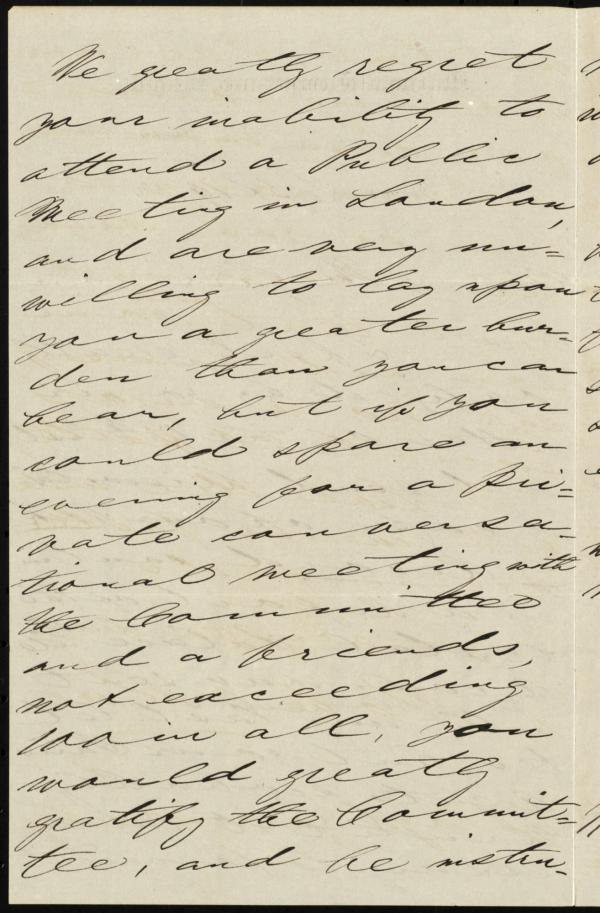 We greatly regret
your inability to
attend a Public
Meeting in London,
and are very un=
willing to lay upon
you a greater bur=
den than you can
bear, but if you
could spare an
evening for a pri=
vate conversa=
tional meeting with
the Committee
and a friends,
not exceeding
100 in all, you
would greatly
gratify the Commit=
tee, and be instru=